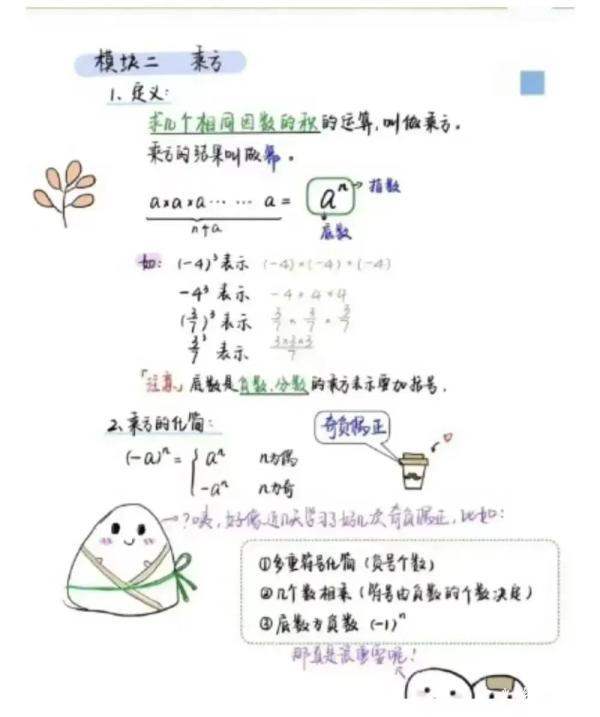 模块二 乘方
1、定义:
求几个相同因数的积的运算,叫做乘方。
乘方的结果叫做幂。
a×a×a…… a = aⁿ 指数
n个a 底数
如: (-4)³表示 (-4)×(-4)×(-4)
-4³ 表示 -4×4×4
(3/7)³表示 3/7 × 3/7 × 3/7
3³/7 表示 3×3×3/7
「注意」底数是负数、分数的乘方表示要加括号.
2、乘方的化简:
奇负偶正
(-a)ⁿ = { aⁿ n为偶
-aⁿ n为奇
?咦,好像这几天学习了好几次奇负偶正,比如:
①多重符号化简(负号个数)
②几个数相乘(符号由负数的个数决定)
③底数为负数 (-1)ⁿ
那真是很重要呢!